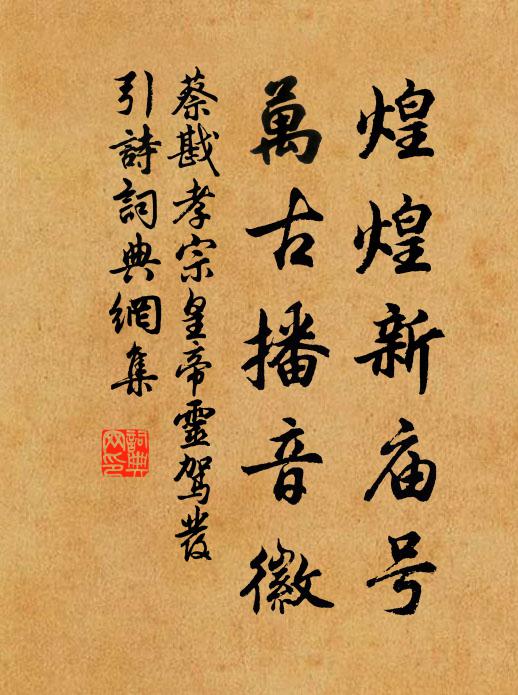 煌煌新庙号
萬古播音徽
蔡戡孝宗皇帝靈駕發
引詩詞典網集
詞典网印